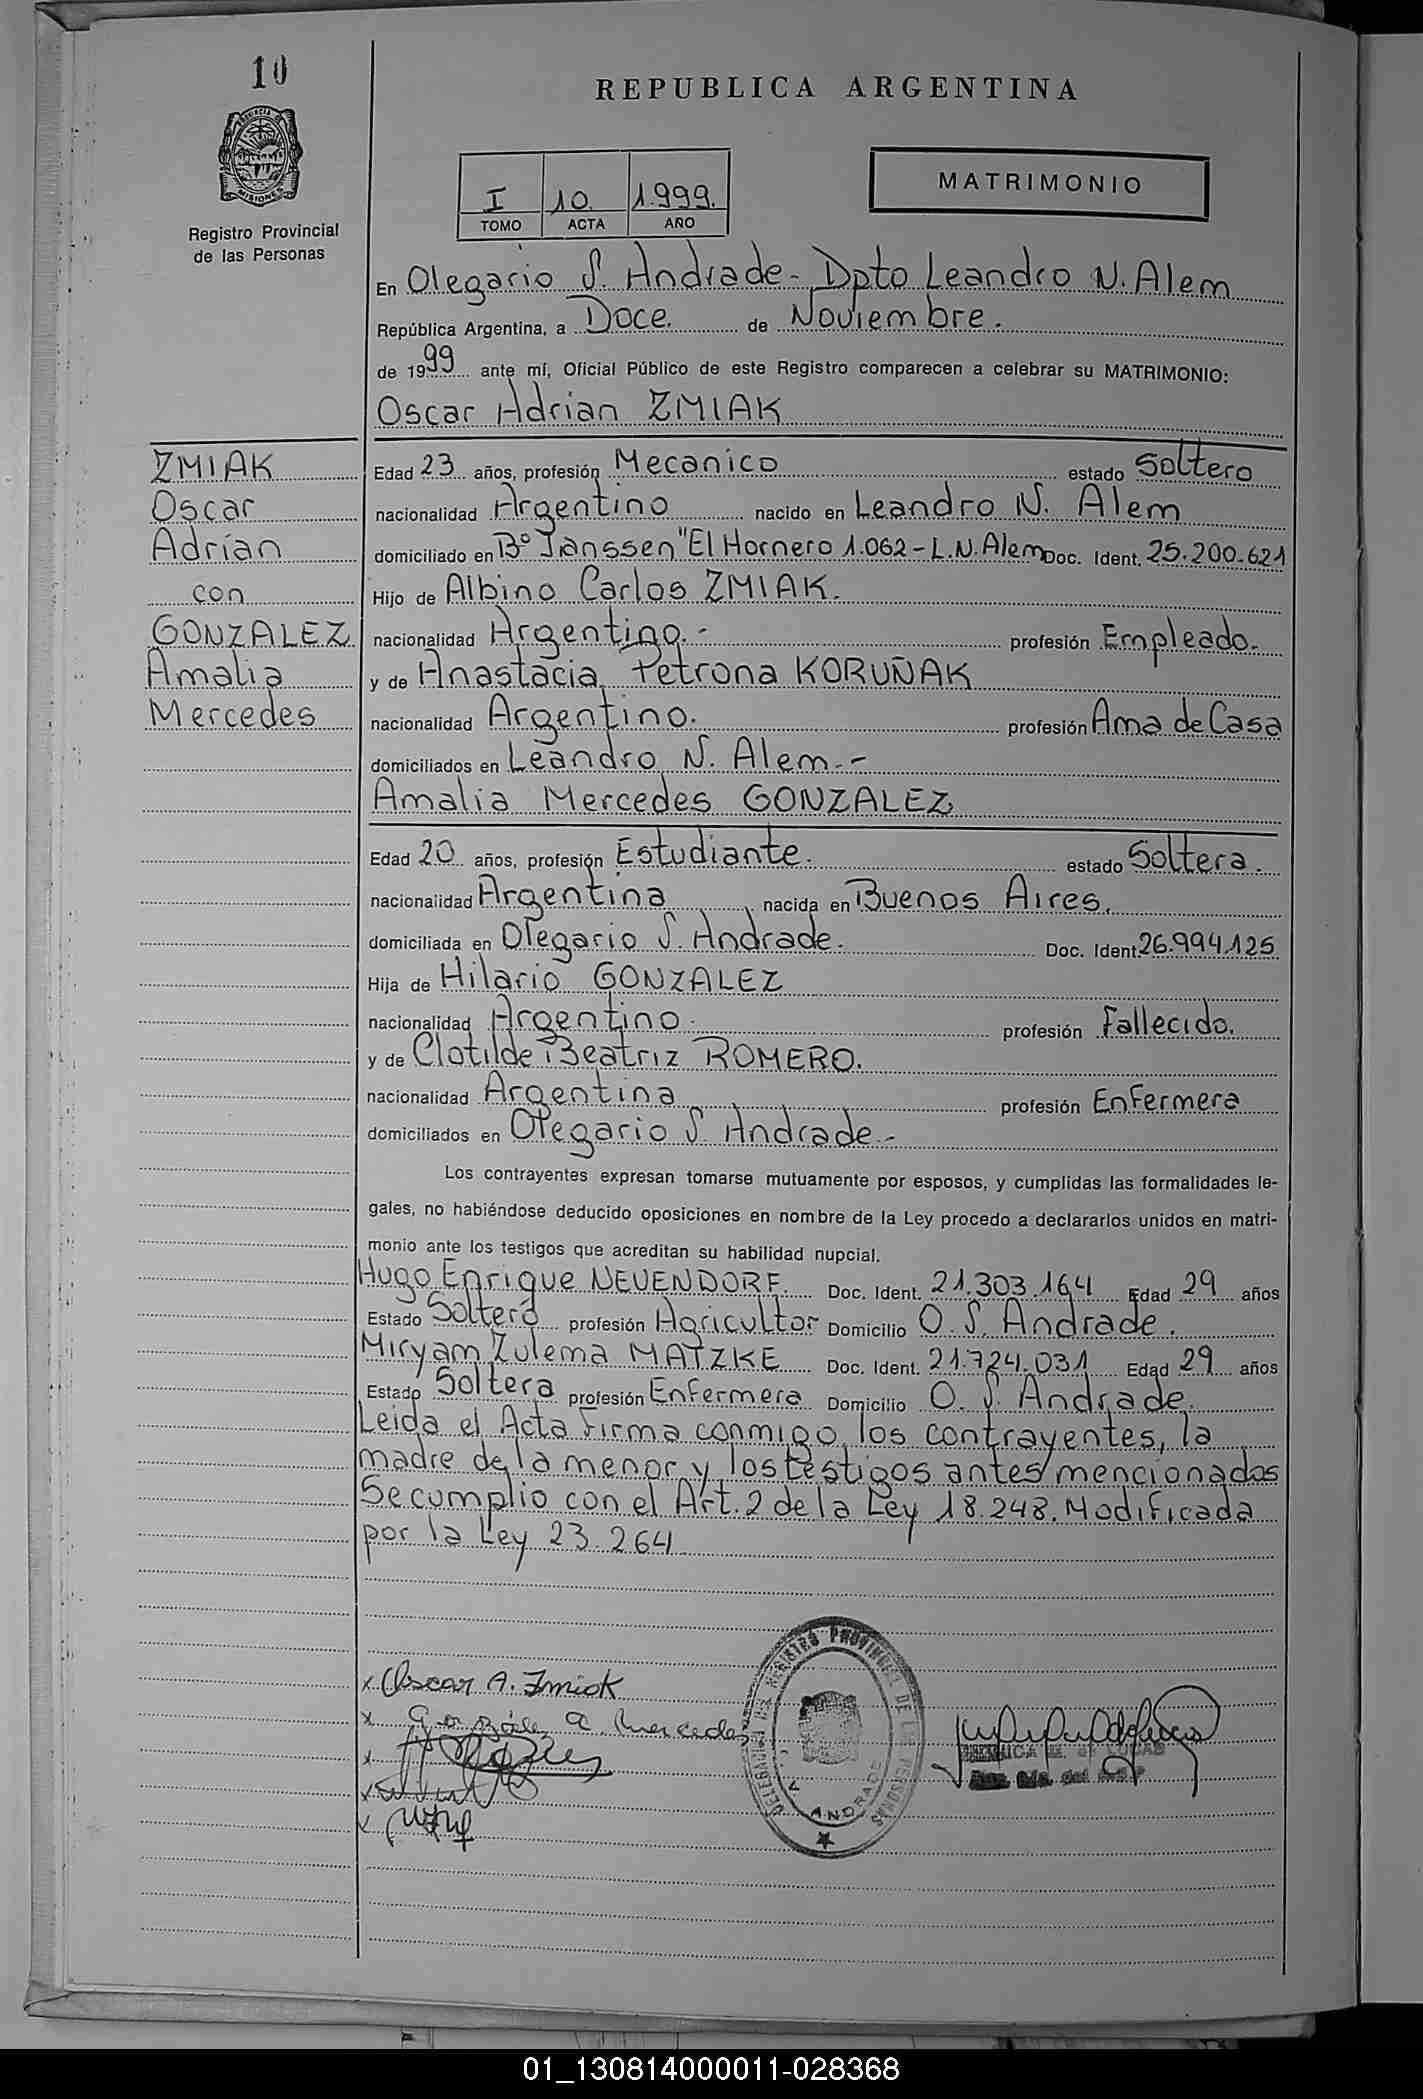 10
REPUBLICA ARGENTINA
MISIONES
Registro Provincial
de las Personas
I 10. 1.999.
TOMO ACTA AÑO
MATRIMONIO
En Olegario S. Andrade - Dpto Leandro N. Alem
República Argentina, a Doce. de Noviembre.
de 1999 ante mí, Oficial Público de este Registro comparecen a celebrar su MATRIMONIO:
Oscar Adrian ZMIAK
ZMIAK
Oscar
Adrían
con
GONZALEZ
Amalia
Mercedes
Edad 23 años, profesión Mecanico estado Soltero
nacionalidad Argentino nacido en Leandro N. Alem
domiciliado en Bº Janssen "El Hornero 1.062 - L.N. Alem Doc. Ident. 25.200.621
Hijo de Albino Carlos ZMIAK.
nacionalidad Argentino.- profesión Empleado.
y de Anastacia Petrona KORUÑAK
nacionalidad Argentino. profesión Ama de Casa
domiciliados en Leandro N. Alem.-
Amalia Mercedes GONZALEZ
Edad 20 años, profesión Estudiante. estado Soltera.
nacionalidad Argentina nacida en Buenos Aires.
domiciliada en Olegario S. Andrade. Doc. Ident. 26.994.125
Hija de Hilario GONZALEZ
nacionalidad Argentino. profesión Fallecido.
y de Clotilde Beatriz ROMERO.
nacionalidad Argentina profesión Enfermera
domiciliados en Olegario S. Andrade.-
Los contrayentes expresan tomarse mutuamente por esposos, y cumplidas las formalidades le-
gales, no habiéndose deducido oposiciones en nombre de la Ley procedo a declararlos unidos en matri-
monio ante los testigos que acreditan su habilidad nupcial.
Hugo Enrique NEUENDORF. Doc. Ident. 21.303.164 Edad 29 años
Estado Soltero profesión Agricultor Domicilio O. S. Andrade.
Miryam Zulema MATZKE Doc. Ident. 21.724.031 Edad 29 años
Estado Soltera profesión Enfermera Domicilio O. S. Andrade.
Leida el Acta Firma conmigo los contrayentes, la
madre de la menor y los testigos antes mencionados
Se cumplio con el Art. 2 de la Ley 18.248. Modificada
por la Ley 23.264
x Oscar A. Zmiak
x González A Mercedes
x
x
x
DELEGACION DEL REGISTRO PROVINCIAL DE LAS PERSONAS
ANDRADE
01_130814000011-028368